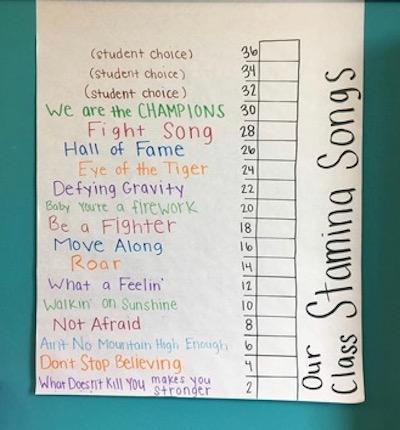 (student choice) 36
(student choice) 34
(student choice) 32
We are the CHAMPIONS 30
Fight Song 28
Hall of Fame 26
Eye of the Tiger 24
Defying Gravity 22
Baby You're a firework 20
Be a Fighter 18
Move Along 16
Roar 14
What a Feelin' 12
Walkin' on Sunshine 10
Not Afraid 8
Ain't No Mountain High Enough 6
Don't Stop Believing 4
What Doesn't Kill You makes you
stronger 2
Our
Class Stamina Songs